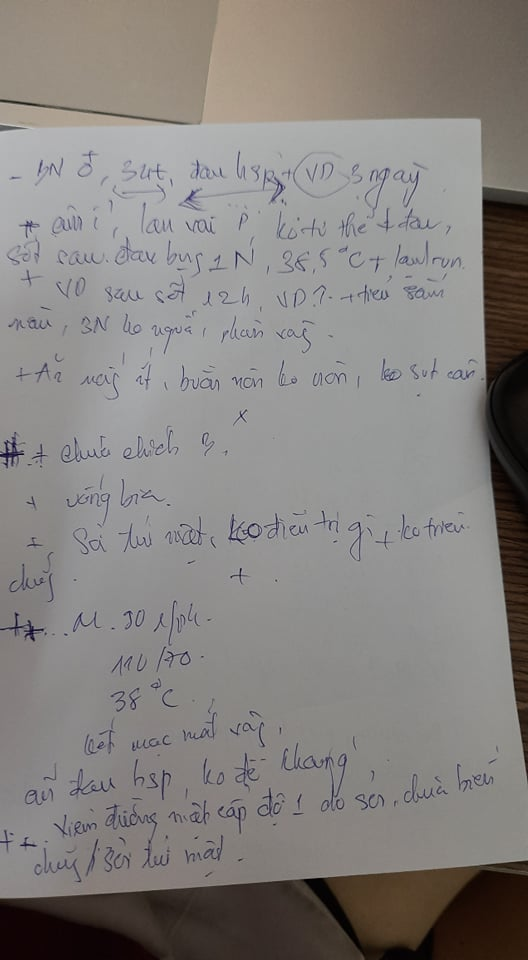 - BN ♂, 32t, đau hsp + VD 3 ngày
+ âm ỉ, lan vai P, ko tư thế ↓ đau,
sốt sau đau bụng 1N, 38,5°C + lạnh run.
+ VD sau sốt 12h, VD↑ + tiểu sẫm
màu, BN ko ngứa, phân vàng.
+ Ăn uống ít, buồn nôn ko nôn, ko sụt cân.
+ chưa chích B,
+ uống bia.
+ Sỏi túi mật, ko điều trị gì + ko triệu
chứng.
+ M. 90 l/ph.
110/70.
38°C.
kết mạc mắt vàng,
ấn đau hsp, ko đề kháng
++ Viêm đường mật cấp độ 1 do sỏi, chưa biến
chứng / sỏi túi mật.